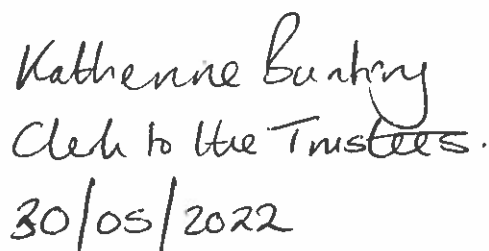 Katherine Bunting
Clerk to the Trustees.
30/05/2022